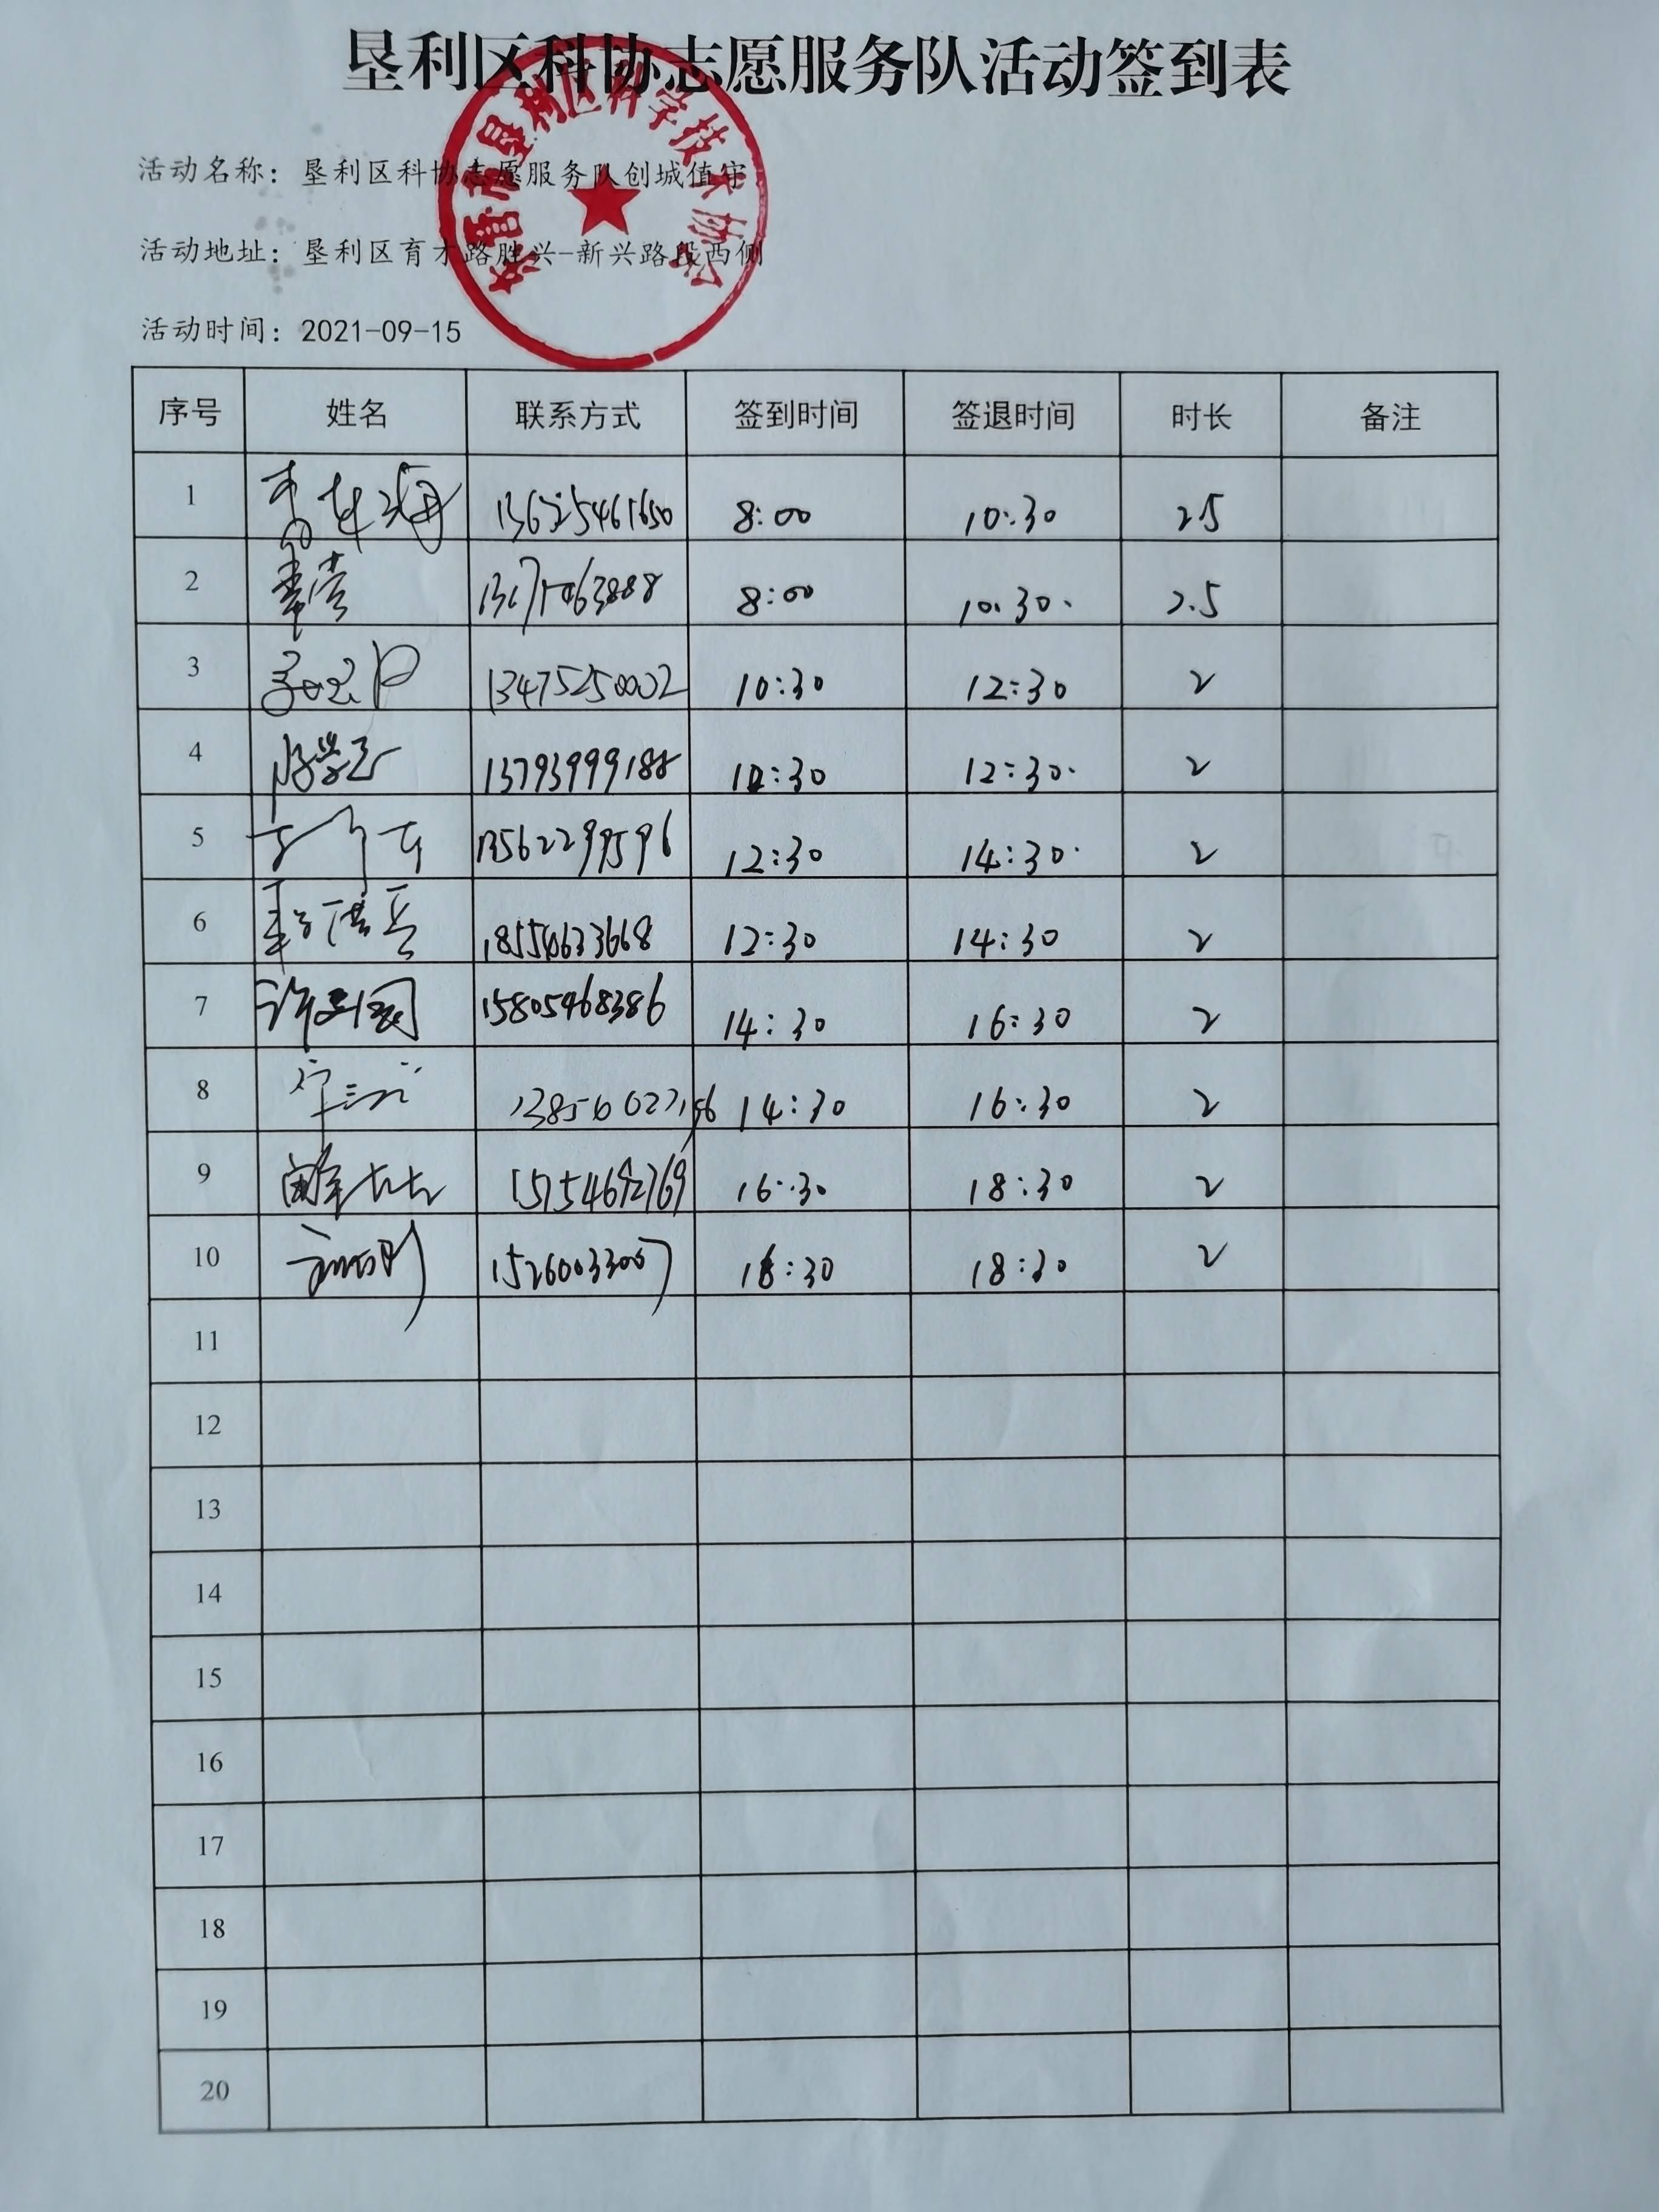 垦利区科协志愿服务队活动签到表
东营市垦利区科学技术协会
活动名称：垦利区科协志愿服务队创城值守
活动地址：垦利区育才路胜兴-新兴路段西侧
活动时间：2021-09-15
序号 姓名 联系方式 签到时间 签退时间 时长 备注
1 13625461650 8:00 10:30 2.5
2 8:00 10:30. 2.5
3 13475250002 10:30 12:30 2
4 13793999188 10:30 12:30. 2
5 13562299596 12:30 14:30. 2
6 18554633668 12:30 14:30 2
7 许建国 15805468386 14:30 16:30 2
8 14:30 16:30 2
9 16:30 18:30 2
10 15260033007 16:30 18:30 2
11
12
13
14
15
16
17
18
19
20